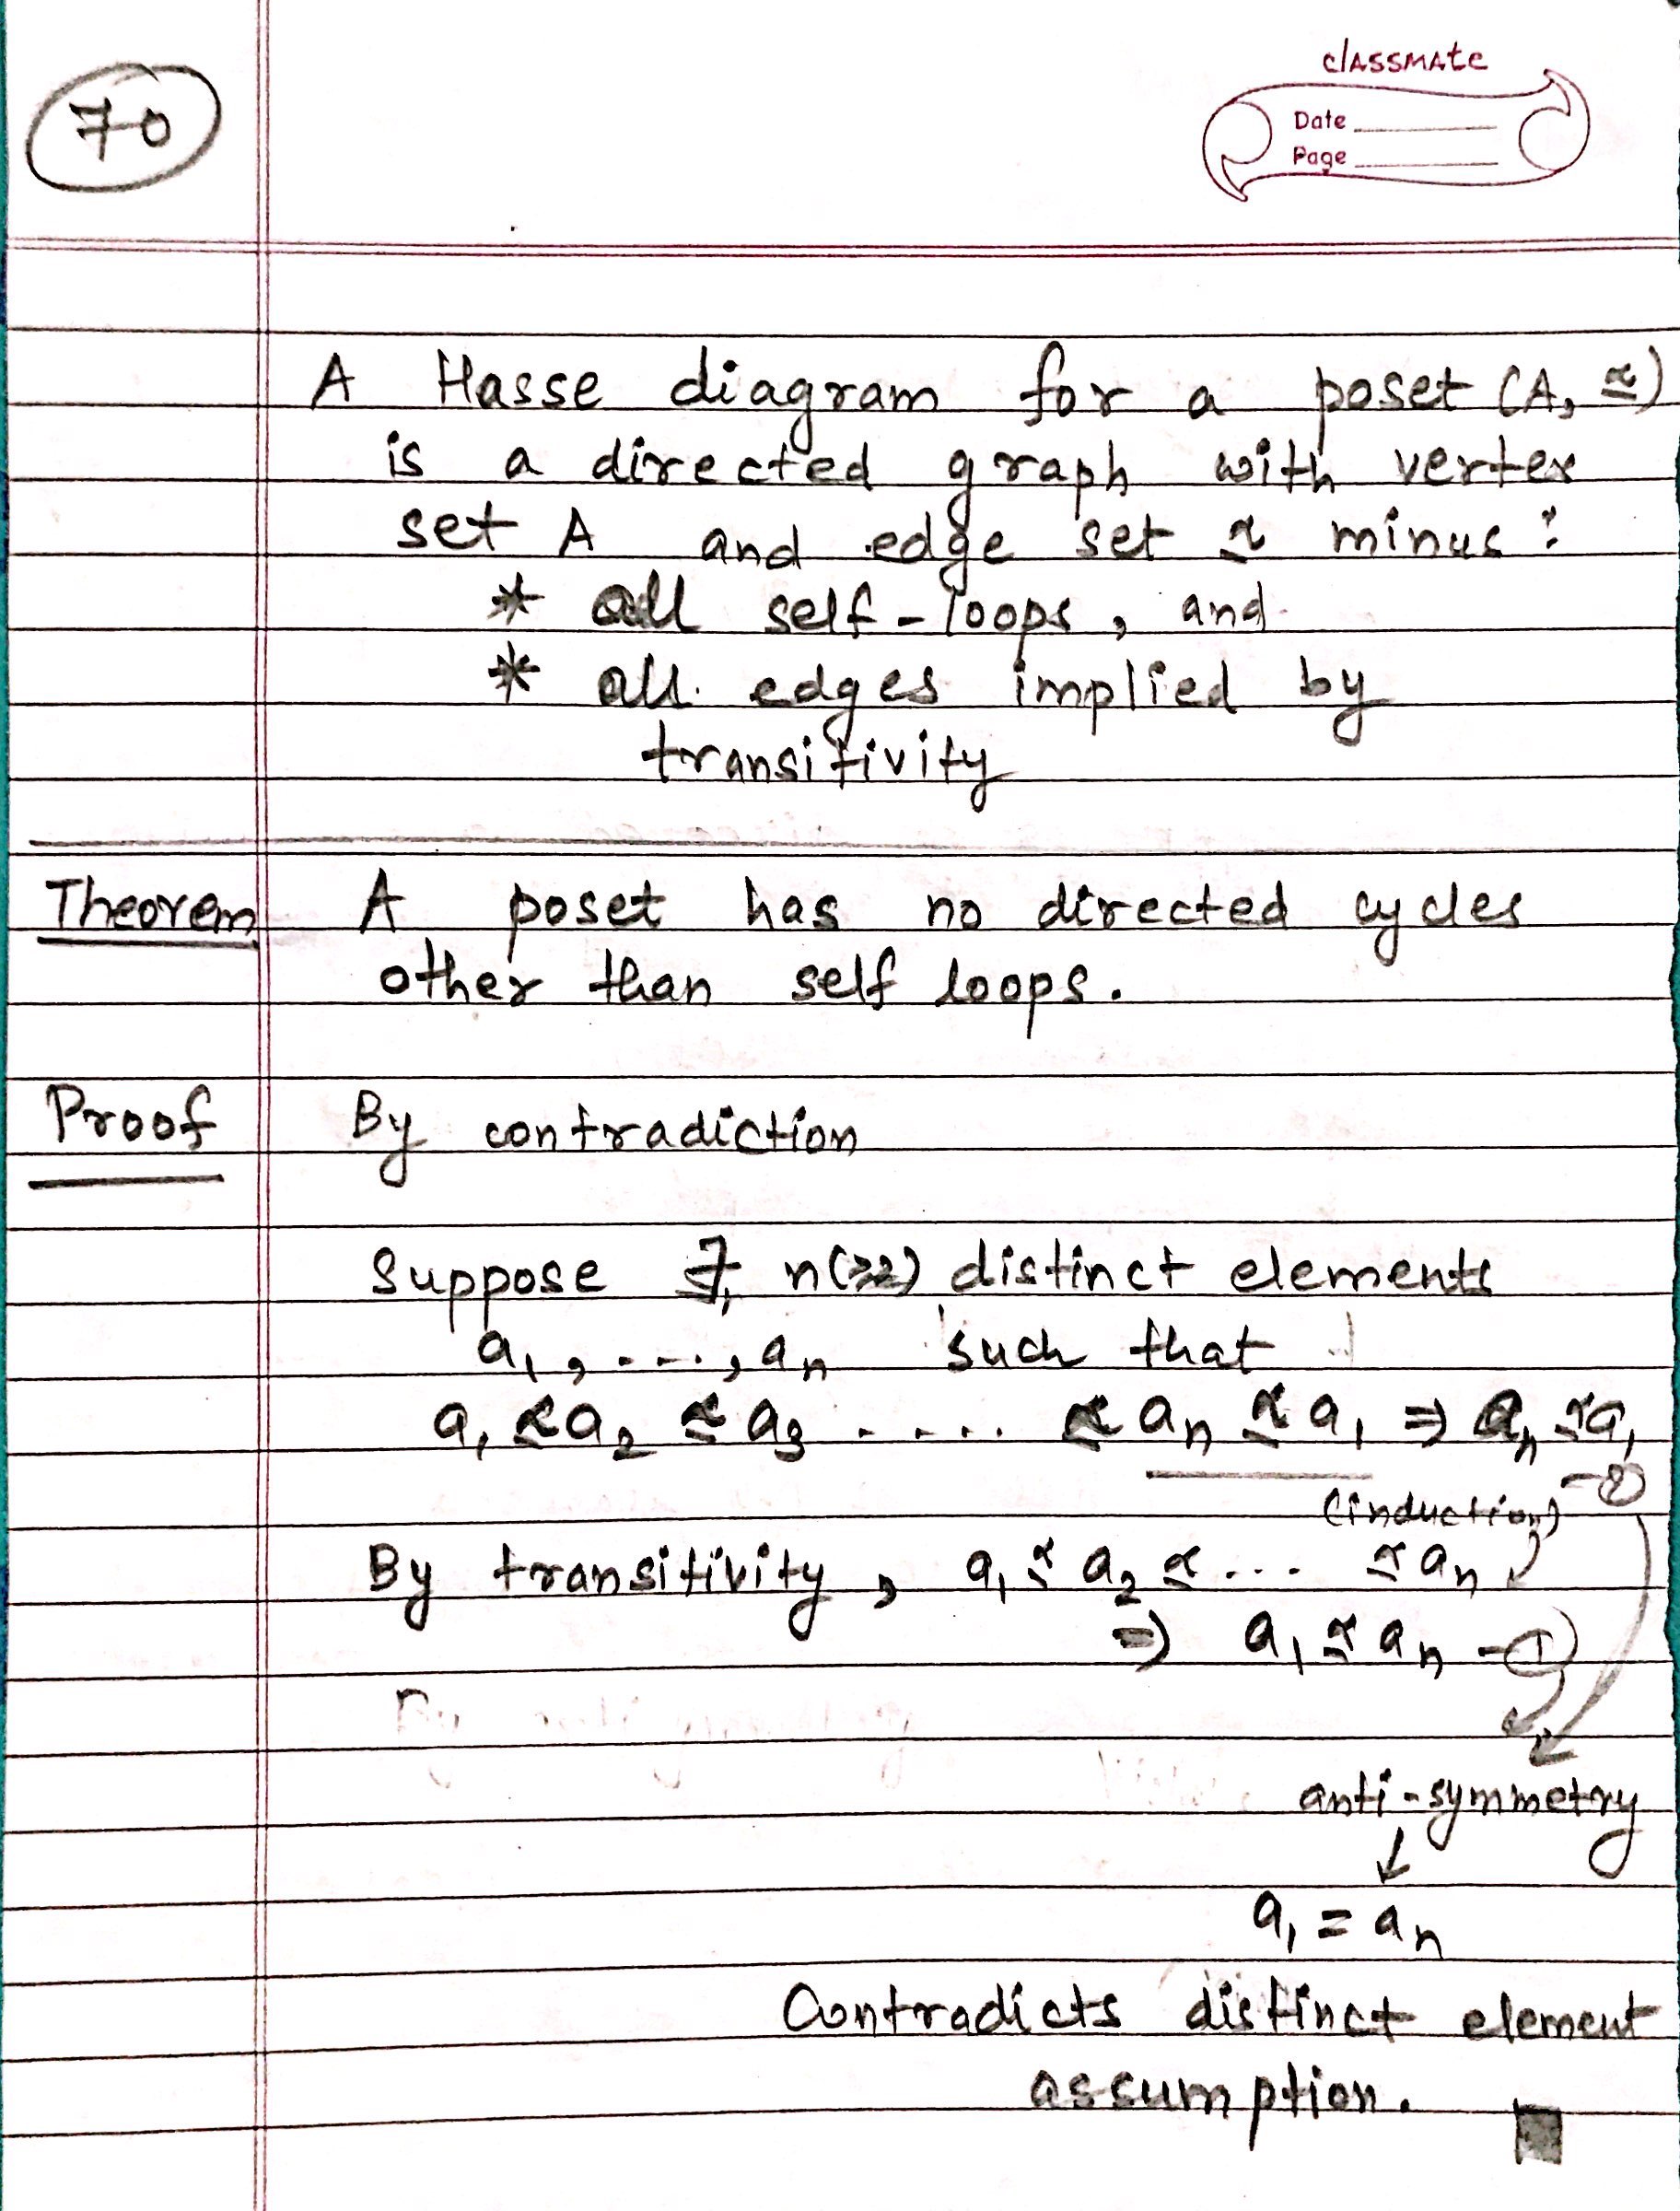 70
classmate
Date
Page
A Hasse diagram for a poset (A, ⪯)
is a directed graph with vertex
set A and edge set ⪯ minus :
* all self-loops, and
* all edges implied by
transitivity
Theorem A poset has no directed cycles
other than self loops.
Proof By contradiction
Suppose ∃ n(≥2) distinct elements
a₁, ...., aₙ such that
a₁ ⪯ a₂ ⪯ a₃ ..... ⪯ aₙ ⪯ a₁ ⇒ aₙ ⪯ a₁
-②
(induction)
By transitivity, a₁ ⪯ a₂ ⪯ ... ⪯ aₙ
⇒ a₁ ⪯ aₙ -①
anti-symmetry
↓
a₁ = aₙ
Contradicts distinct element
assumption.